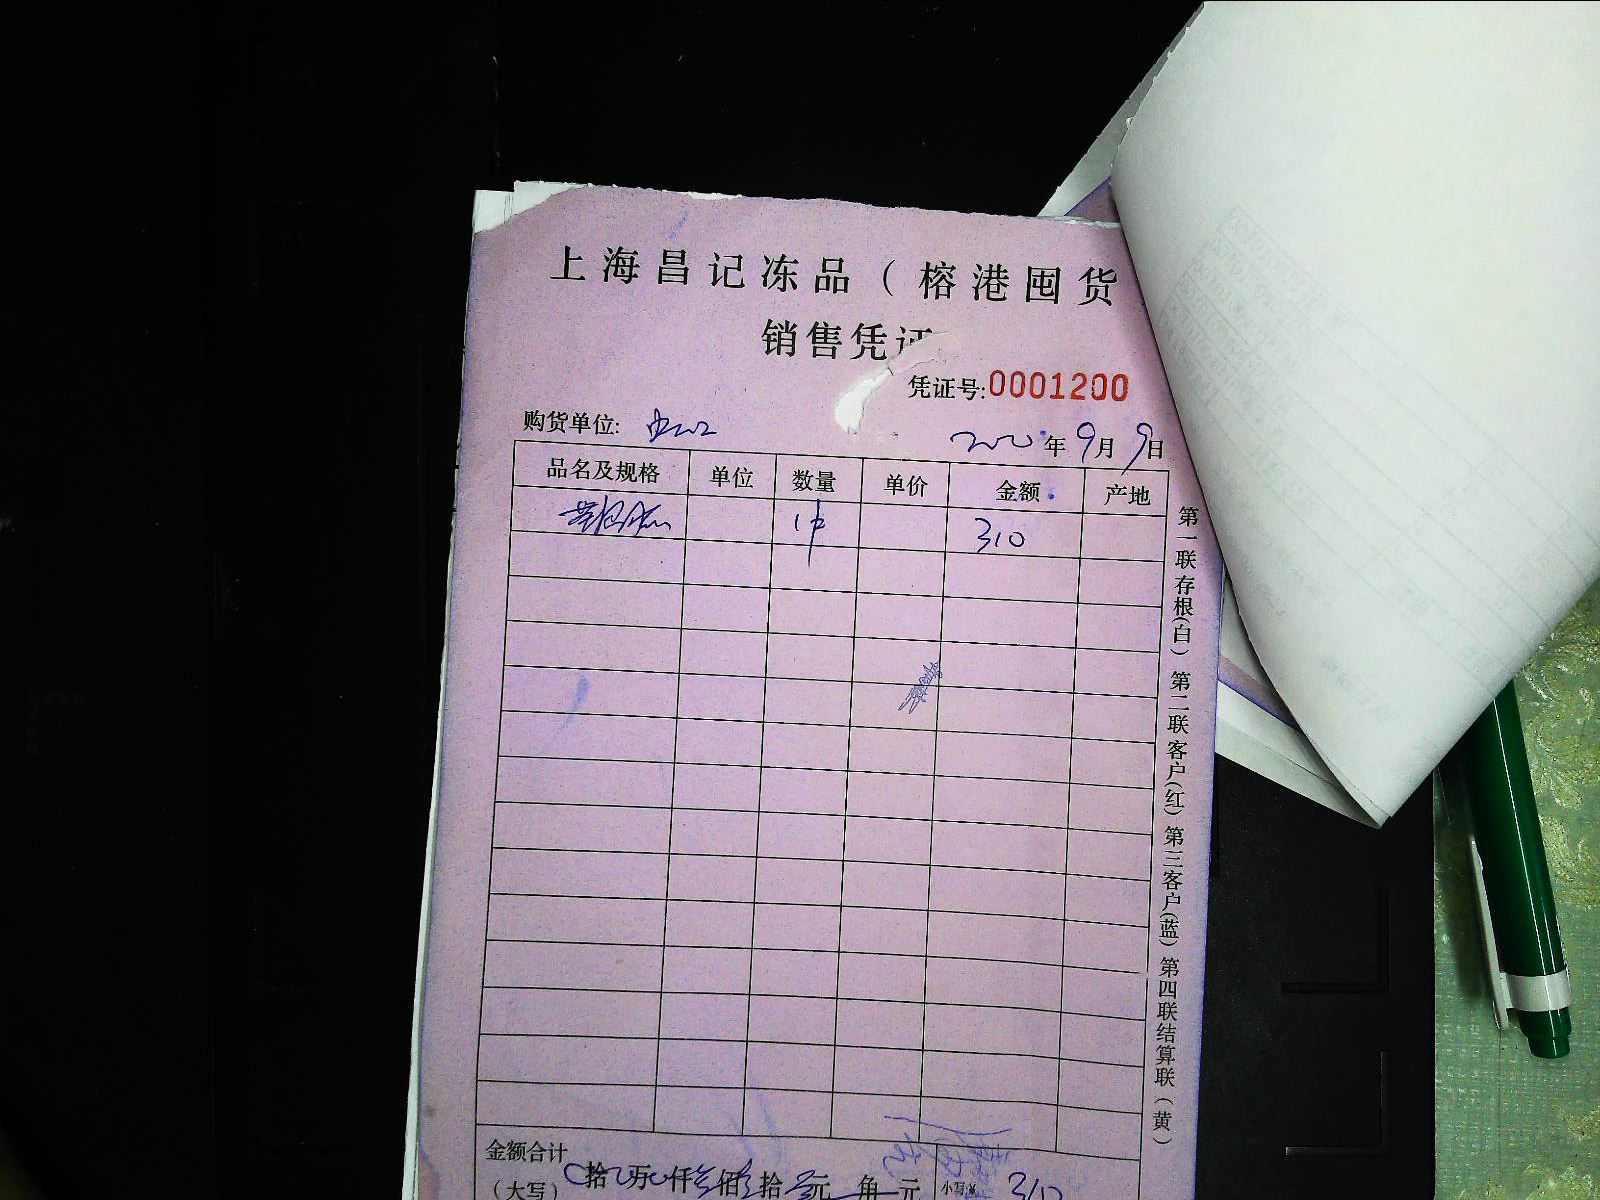 上海昌记冻品（榕港囤货
销售凭证
凭证号:0001200
购货单位:
2020年9月9日
品名及规格 单位 数量 单价 金额 产地
1件 310
第一联存根(白) 第二联客户(红) 第三客户(蓝) 第四联结算联(黄)
金额合计
(大写) 拾 万 仟 佰 拾 元 角 元 小写:¥ 310